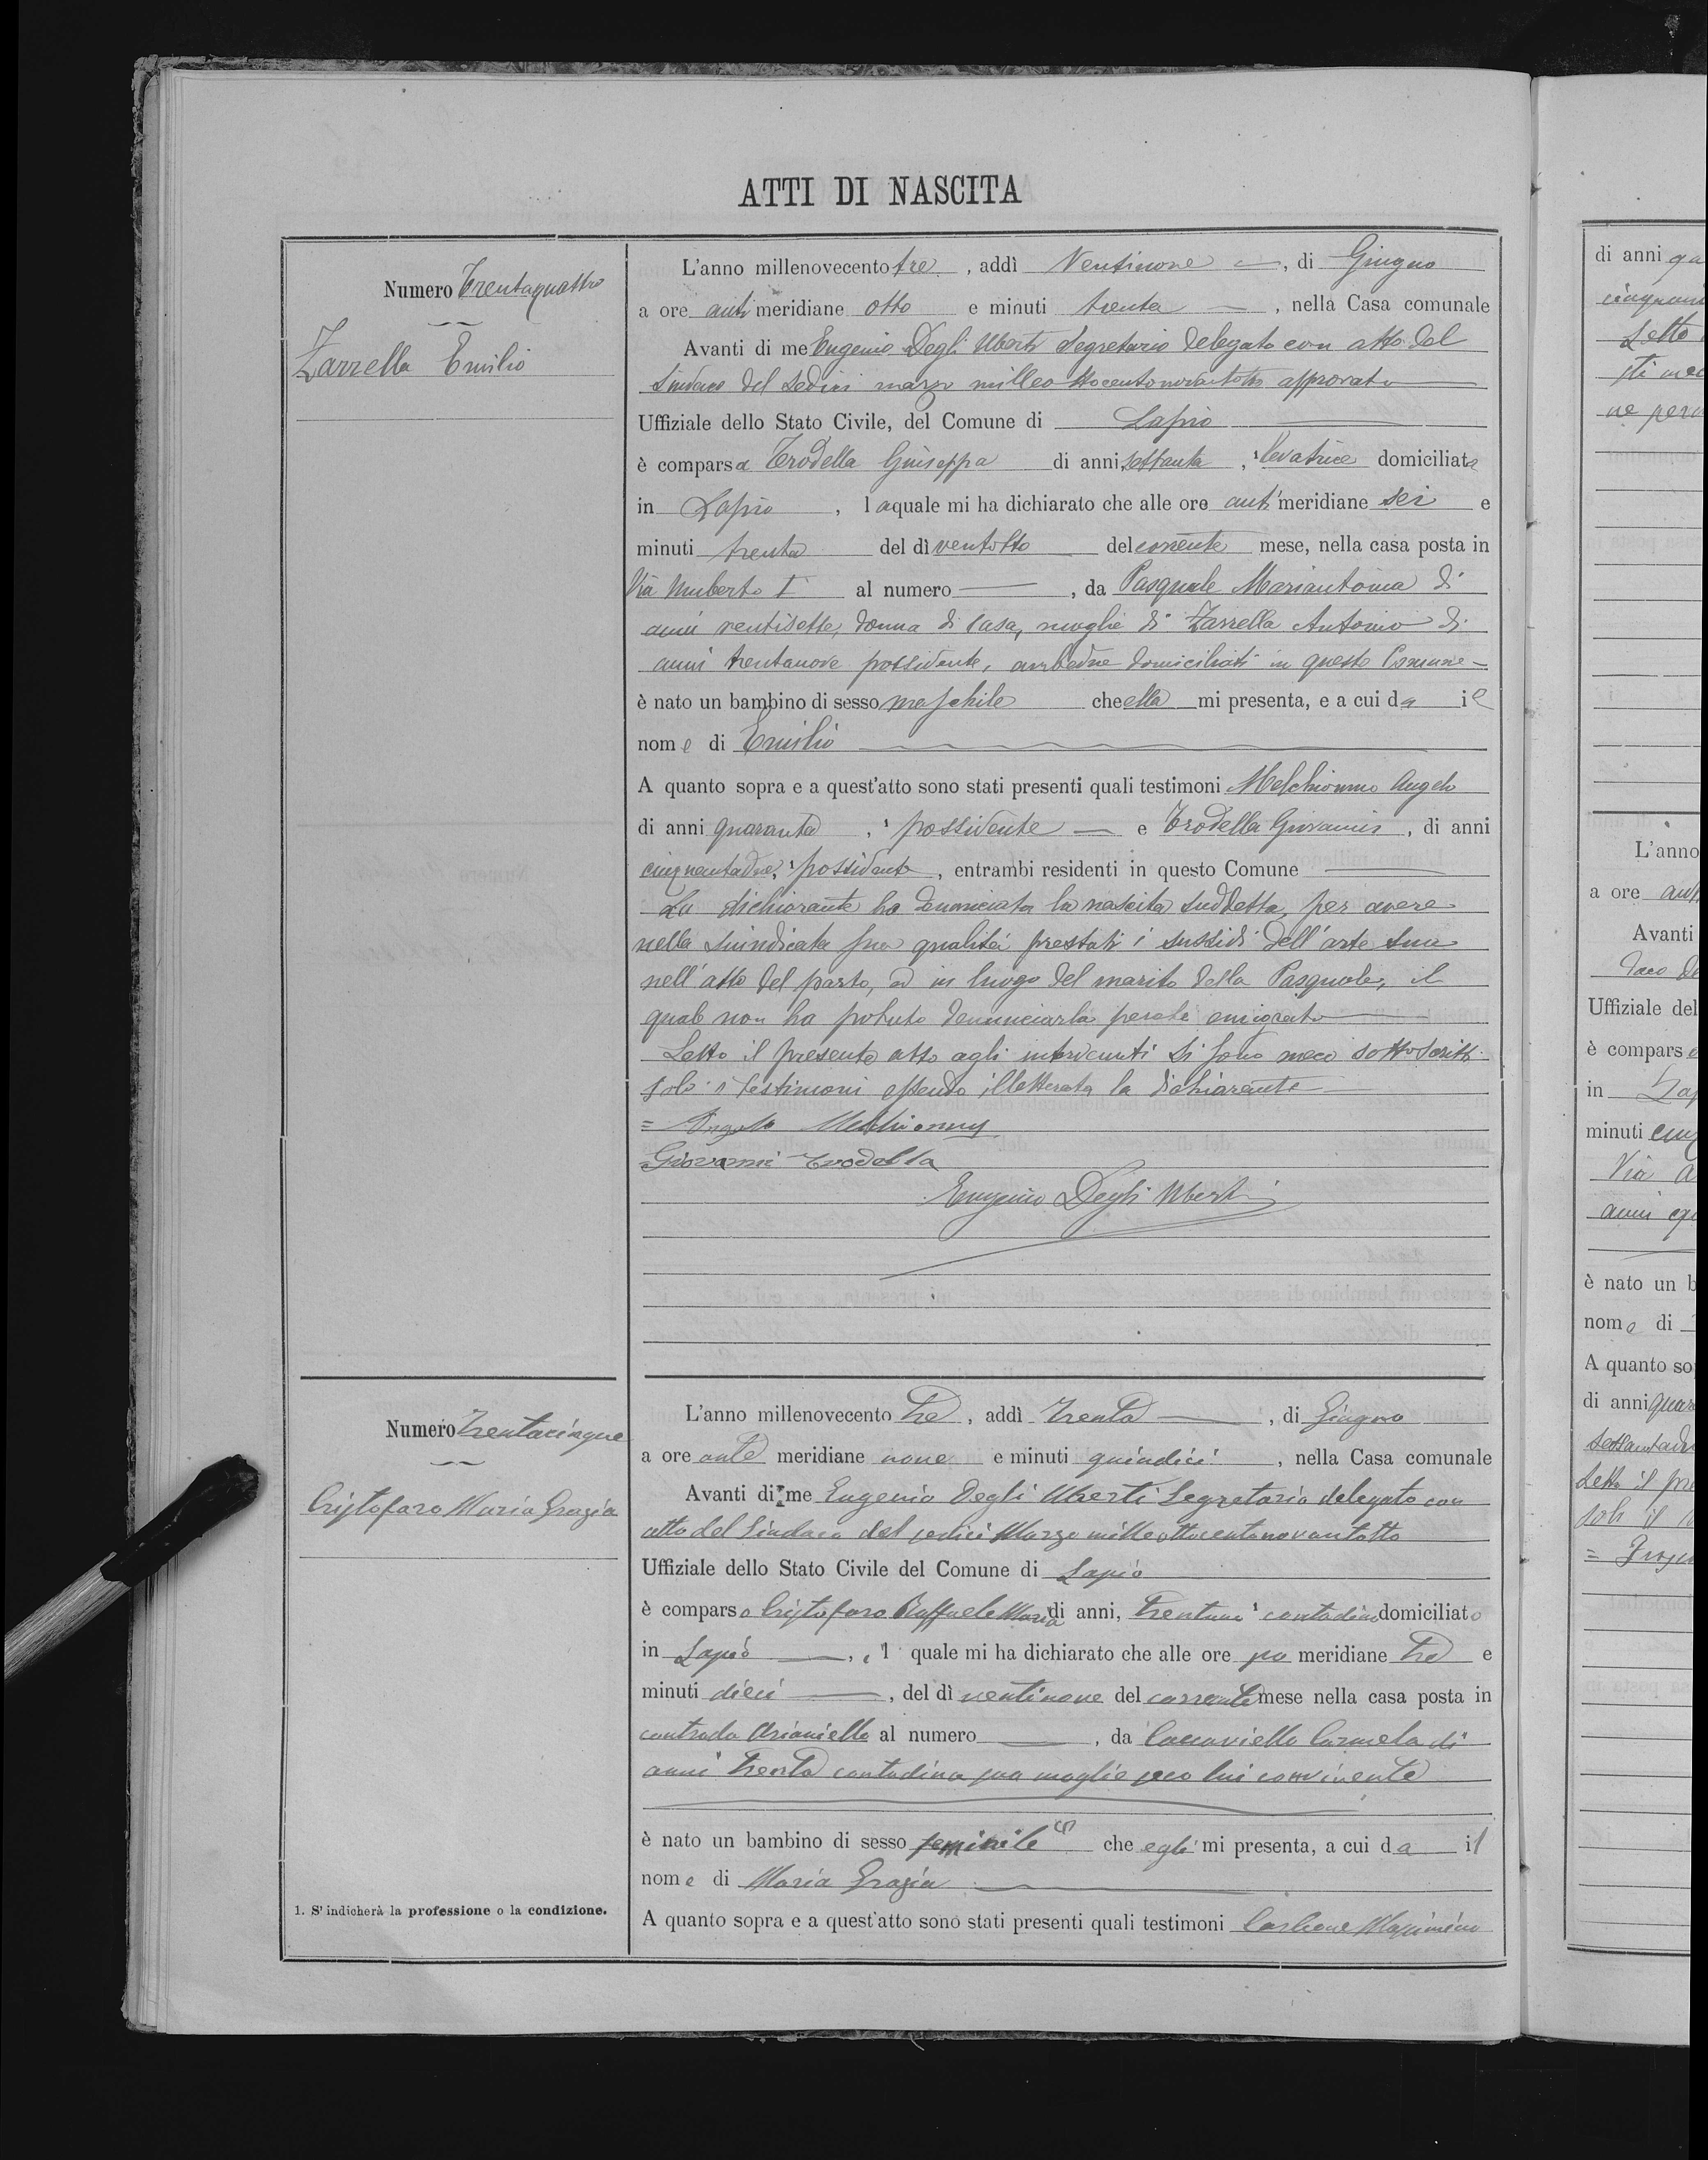 ATTI DI NASCITA
Numero Trentaquattro
Zarrella Emilio
L'anno millenovecento tre, addì Ventinove, di Giugno
a ore anti meridiane otto e minuti trenta, nella Casa comunale
Avanti di me Eugenio Degli Uberti Segretario delegato con atto del
Sindaco del Sedici marzo milleottocentonovantotto approvato
Uffiziale dello Stato Civile, del Comune di Lapio
è comparsa Trodella Giuseppa di anni settanta, ¹ levatrice domiciliata
in Lapio, la quale mi ha dichiarato che alle ore anti meridiane sei e
minuti trenta del dì ventotto del corrente mese, nella casa posta in
Via Umberto I al numero, da Pasquale Mariantonia di
anni ventisette, donna di casa, moglie di Zarrella Antonio di
anni trentanove possidente, ambedue domiciliati in questo Comune
è nato un bambino di sesso maschile che ella mi presenta, e a cui da il
nome di Emilio
A quanto sopra e a quest'atto sono stati presenti quali testimoni Melchionno Angelo
di anni quaranta, ¹ possidente e Trodella Giovanni, di anni
cinquantadue, ¹ possidente, entrambi residenti in questo Comune
La dichiarante ha denunciata la nascita suddetta, per avere
nella suindicata sua qualità prestati i sussidi dell'arte sua
nell'atto del parto, ed in luogo del marito della Pasquale, il
quale non ha potuto denunciarla perchè emigrato
Letto il presente atto agli intervenuti si sono meco sottoscritti
solo i testimoni essendo illetterata la dichiarante
= Angelo Melchionno
Giovanni Trodella
Eugenio Degli Uberti
Numero Trentacinque
Cristofaro Maria Grazia
L'anno millenovecento tre, addì trenta, di Giugno
a ore ante meridiane nove e minuti quindici, nella Casa comunale
Avanti di me Eugenio Degli Uberti Segretario delegato con
atto del Sindaco del sedici Marzo milleottocentonovantotto
Uffiziale dello Stato Civile del Comune di Lapio
è comparso Cristofaro Raffaele Maria di anni, trentuno ¹ contadino domiciliato
in Lapio, il quale mi ha dichiarato che alle ore po meridiane tre e
minuti dieci, del dì ventinove del corrente mese nella casa posta in
contrada Arianiello al numero, da Caccaviello Carmela di
anni trenta contadina sua moglie seco lui convivente
è nato un bambino di sesso feminile che egli mi presenta, a cui da il
nome di Maria Grazia
A quanto sopra e a quest'atto sono stati presenti quali testimoni Carbone
1. S'indicherà la professione o la condizione.
di anni
L'anno
a ore
Avanti
Uffiziale del
è compars
in
minuti
Via
anni
è nato un b
nome di
A quanto so
di anni